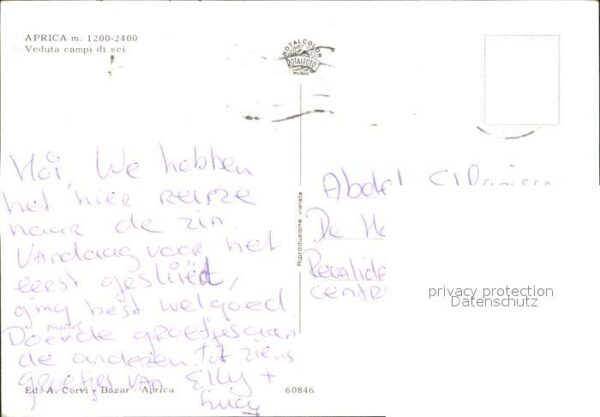 APRICA m. 1200-2400
Veduta campi di sci
ROTALCOLOR
ROTALFOTO
MILANO
Hoi We hebben
het hier reuze
naar de zin.
Vandaag voor het
eerst geskied,
ging best wel goed.
Doe de groetjes aan
de anderen. Tot ziens
groetjes van Elly +
Lucy
Riproduzione vietata
Abdel
De
Revalide
centr
privacy protection
Datenschutz
Ed. A. Corvi - Bazar - Aprica
60846